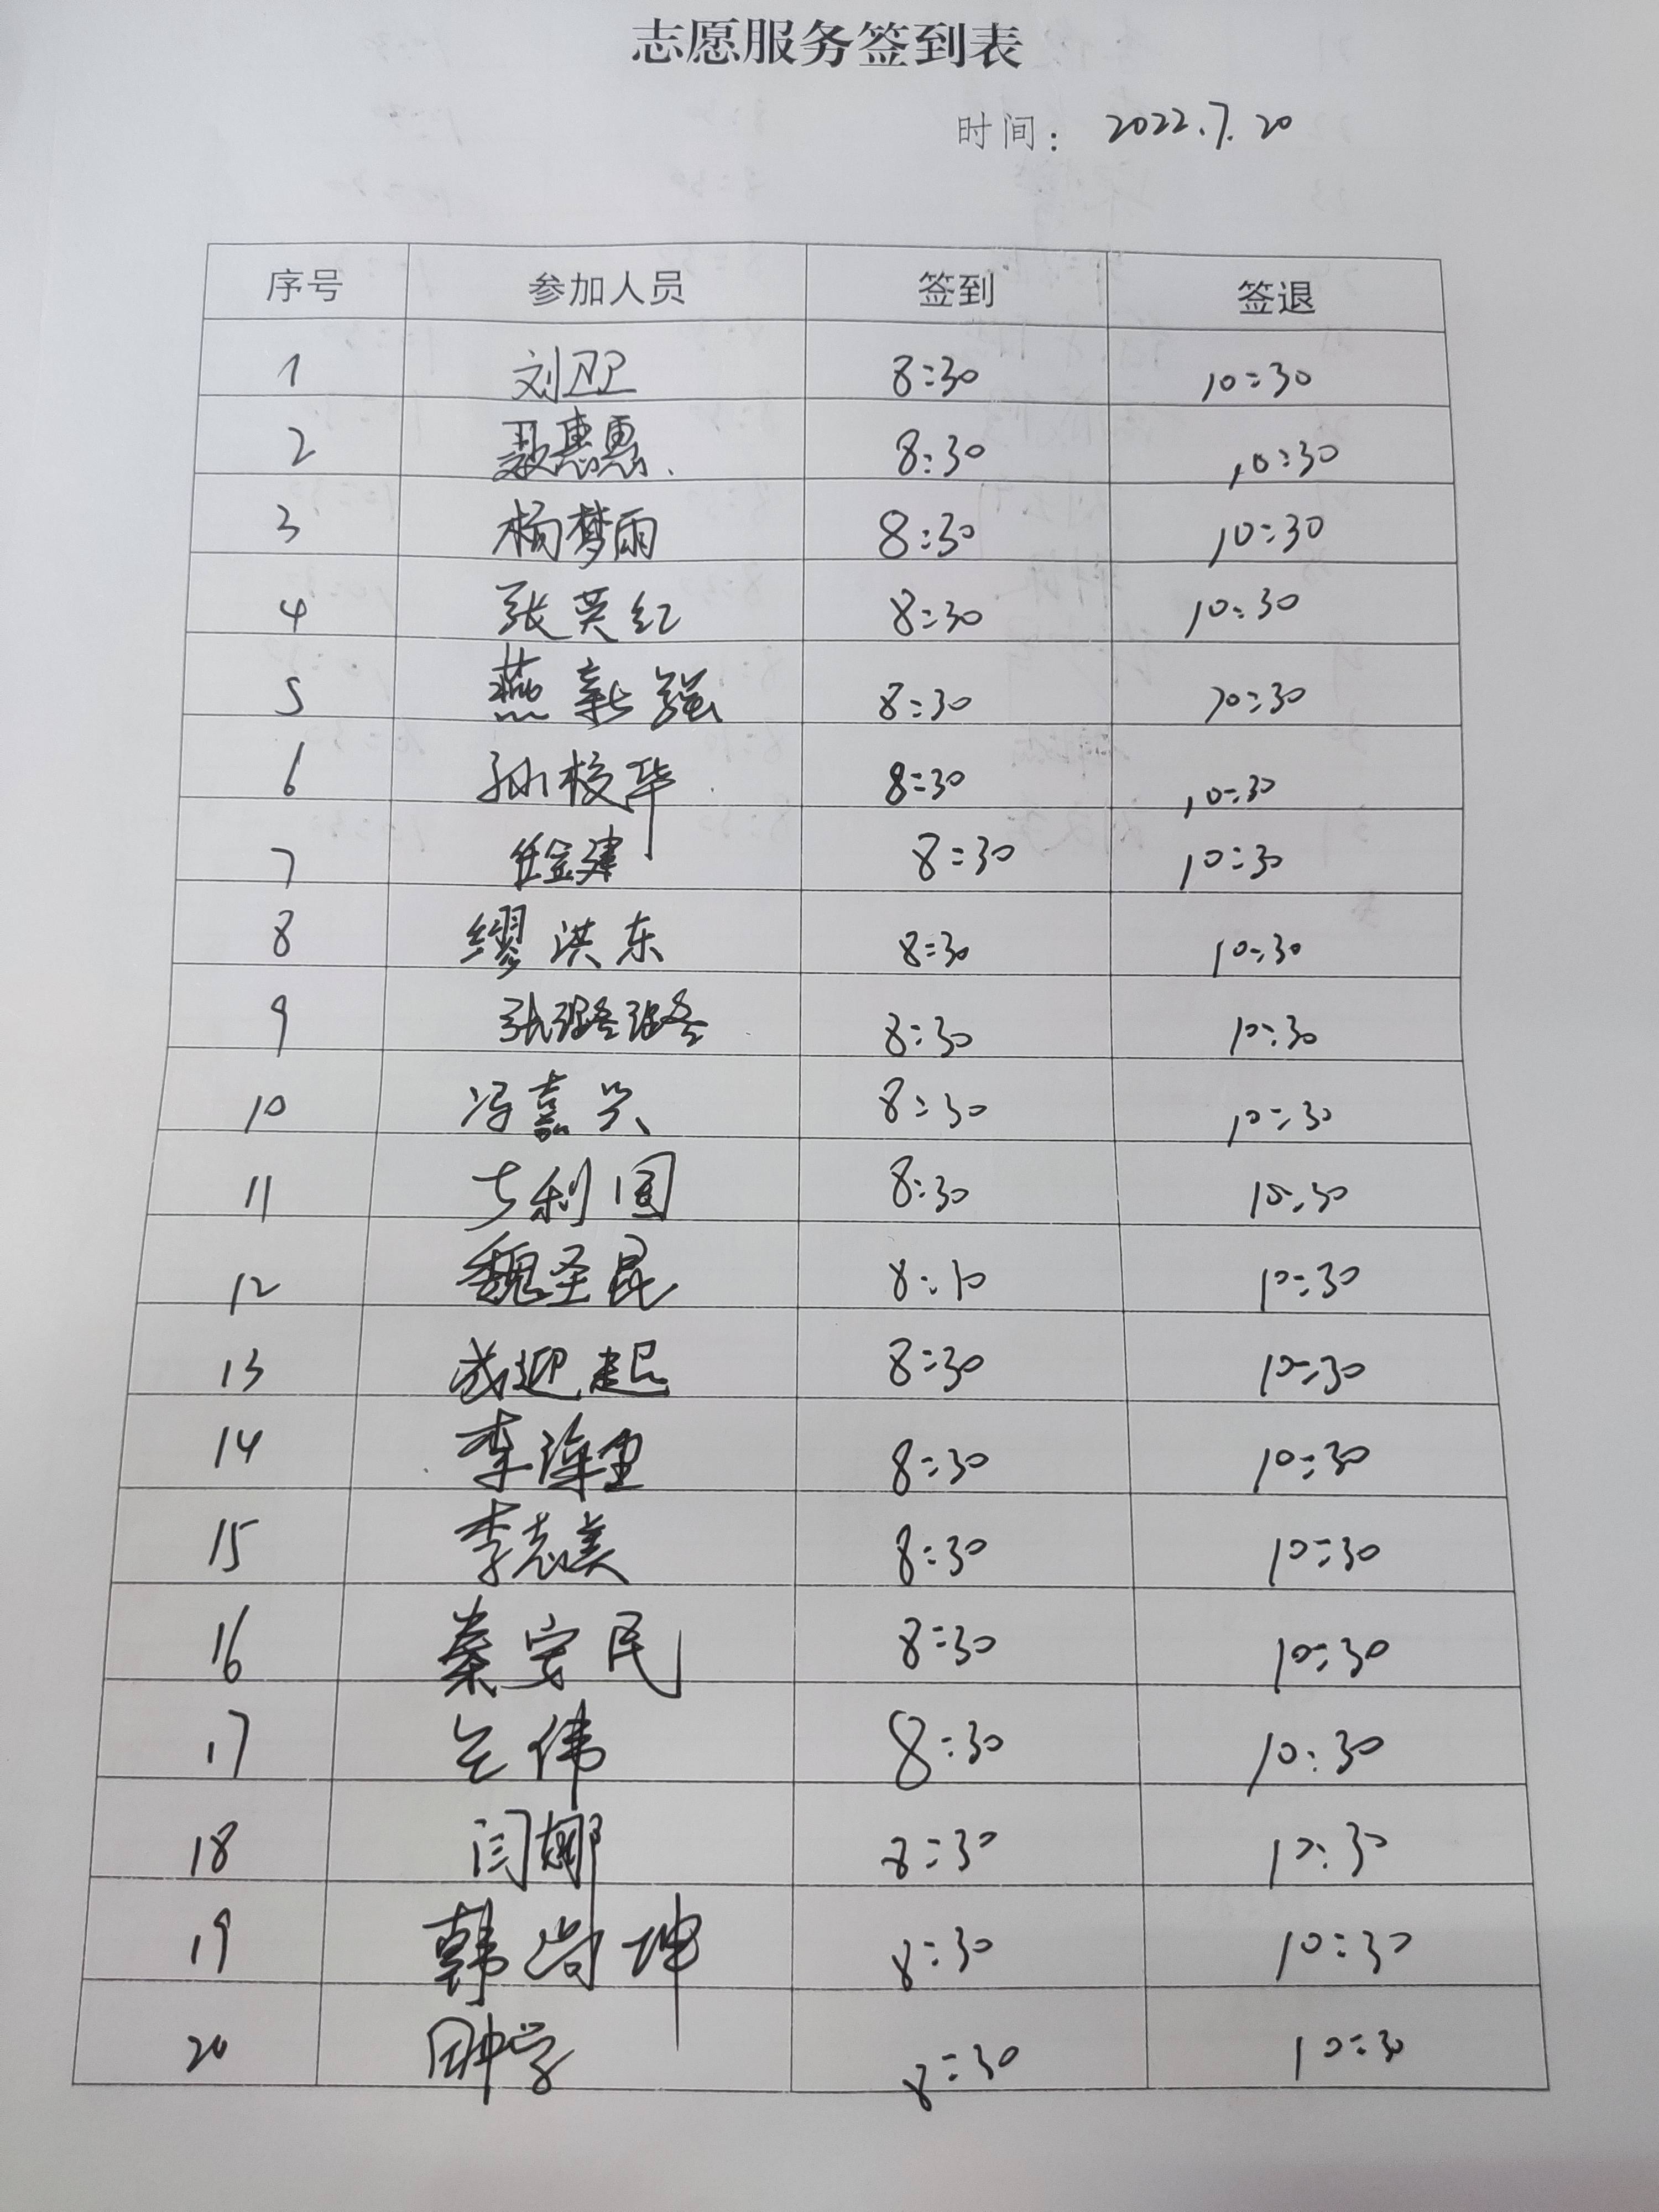 志愿服务签到表
时间： 2022.7.20
序号 参加人员 签到 签退
1 刘卫卫 8:30 10:30
2 聂惠惠 8:30 10:30
3 杨梦雨 8:30 10:30
4 张英红 8:30 10:30
5 燕新强 8:30 10:30
6 孙校华 8:30 10:30
7 任立建 8:30 10:30
8 缪洪东 8:30 10:30
9 张璐璐 8:30 10:30
10 冯嘉兴 8:30 10:30
11 利国 8:30 10:30
12 魏圣昆 8:10 10:30
13 成迎起 8:30 10:30
14 李 8:30 10:30
15 李志美 8:30 10:30
16 秦安民 8:30 10:30
17 伟 8:30 10:30
18 闫娜 8:30 10:30
19 韩尚坤 8:30 10:30
20 8:30 10:30